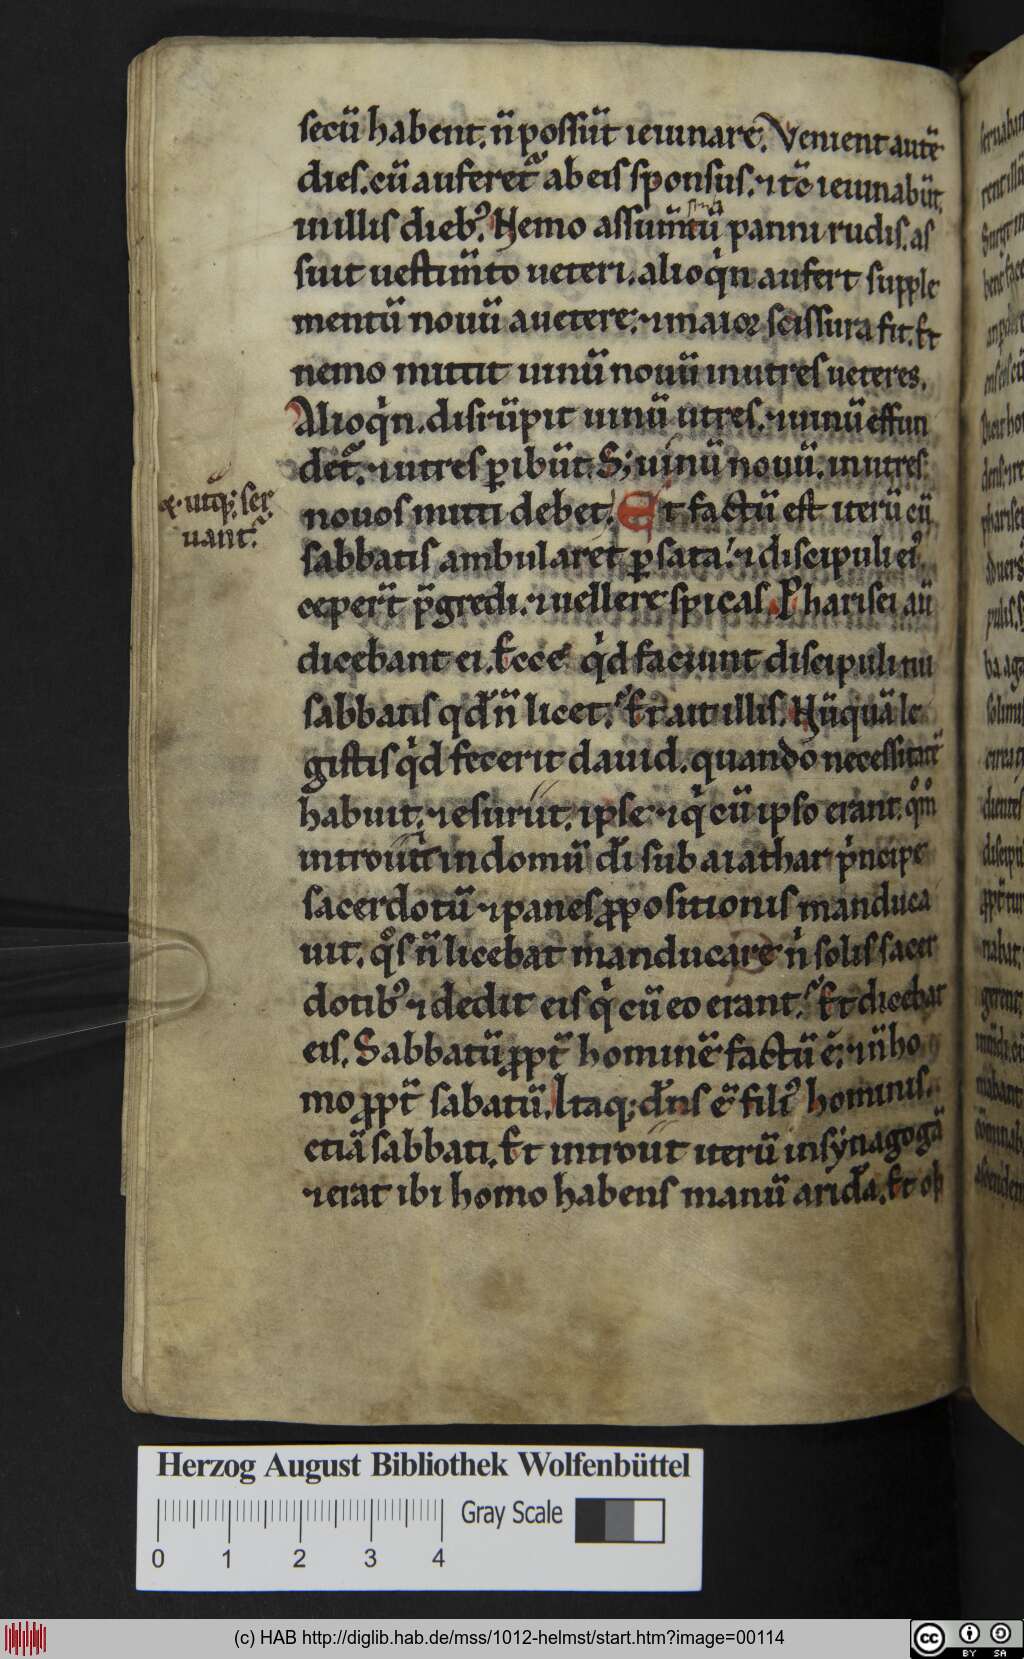 secū habent. n̄ possūt ieiunare. Venient autē
dies. cū auferet᷑ ab eis sponsus. ⁊ tc̄ ieiunabūt
in illis dieb᷒. Nemo assum̄tū panni rudis. as
suit uestim̄to ueteri. alioqͥn aufert supple
mentū nouū a uetere. ⁊ maior scissura fit. Et
nemo mittit uinū nouū in utres ueteres.
Alioqͥn. disrūpit uinū utres. ⁊ uinū effun
det᷑. ⁊ utres ꝑibūt. S; uinū nouū. in utres
nouos mitti debet. Et factū est iterū cū
⁊ utiq;. ser
uant᷑.
sabbatis ambularet ꝑ sata. ⁊ discipuli ei᷒
ceper̄t p̄gredi. ⁊ uellere spicas. Pharisei aū
dicebant ei. Ecce qͥd faciunt discipuli tui
sabbatis qd̄ n̄ licet. Et ait illis. Nūquā le
gistis qͥd fecerit dauid. quando necessitatē
habuit. ⁊ esuriit. ipse ⁊ qͥ cū ipso erant. qͦm̄
introiit in domū dī sub aiathar pͥncipe
sacerdotū ⁊ panes ꝓpositionis manduca
uit. qͦs n̄ licebat manducare nͥ solis sacer
dotib᷒ ⁊ dedit eis qͥ cū eo erant. Et dicebat
eis. Sabbatū ꝓpt̄ hominē factū ē. ⁊ n̄ ho
mo ꝓpt̄ sabatū. Itaq; dn̄s ē fili᷒ hominis.
etiā sabbati. Et introiit iterū in synagogā
⁊ erat ibi homo habens manū aridā. Et ob
Herzog August Bibliothek Wolfenbüttel
Gray Scale
0 1 2 3 4
(c) HAB http://diglib.hab.de/mss/1012-helmst/start.htm?image=00114
cc BY SA